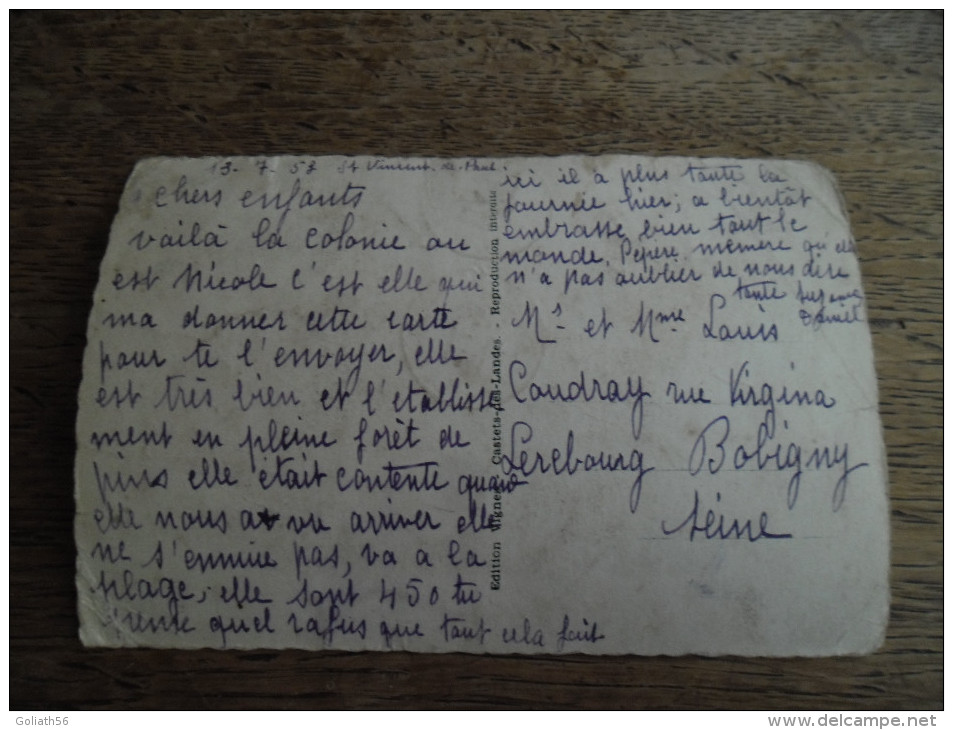 13-7-53 St Vincent-de-Paul
chers enfants
voilà la colonie ou
est Nicole c'est elle qui
ma donner cette carte
pour te l'envoyer, elle
est très bien et l'etablisse
ment en pleine forêt de
pins elle était contente quand
elle nous a vu arriver elle
ne s'ennuie pas, va a la
plage, elle sont 450 tu
pense quel rafus que tout cela fait
ici il a plus toute la
journie hier; a bientôt
embrasse bien tout le
monde, Pépère, mémère qu'elle
n'a pas oublier de nous dire
tante Suzanne
Daniel
Mr et Mme Louis
Coudray rue Virgina
Lerebourg Bobigny
Seine
Edition Vignes, Castets-des-Landes. - Reproduction interdite
Goliath56
www.delcampe.net